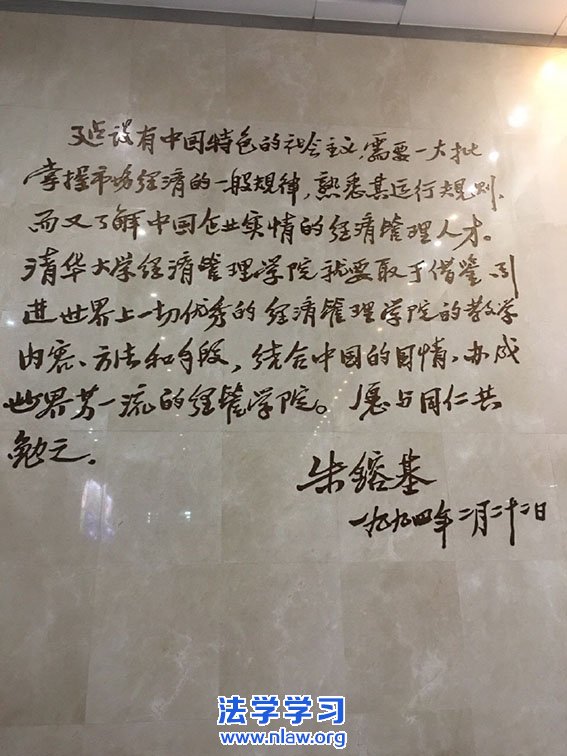 建设有中国特色的社会主义,需要一大批
掌握市场经济的一般规律,熟悉其运行规则、
而又了解中国企业实情的经济管理人才。
清华大学经济管理学院就要敢于借鉴、引
进世界上一切优秀的经济管理学院的教学
内容、方法和手段,结合中国的国情,办成
世界第一流的经管学院。愿与同仁共
勉之。
朱镕基
一九九四年二月二十二日
法学学习
www.nlaw.org